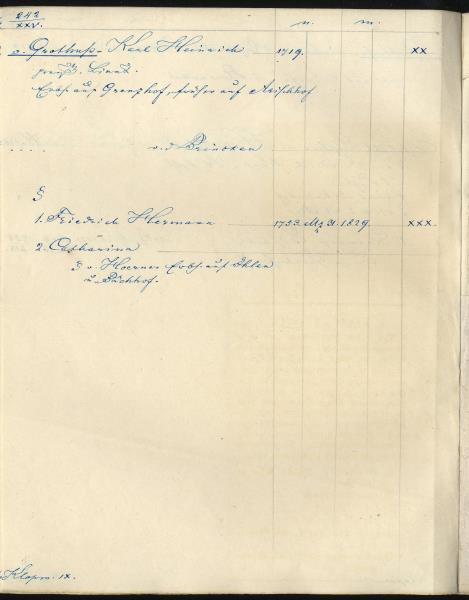 242
XXV.
n. m.
v. Grotthuß- Karl Heinrich 1719. XX
preuß. Lieut.
Erbh. auf Grenzhof, früher auf Arischhof
. . . . v. d. Brincken
§
1. Friedrich Hermann 1753. Mz 31. 1829. XXX.
2. Catharina
§ v. Hoerner Erbh. auf Ihlen
u. Buchhof.
Klopm. IX.